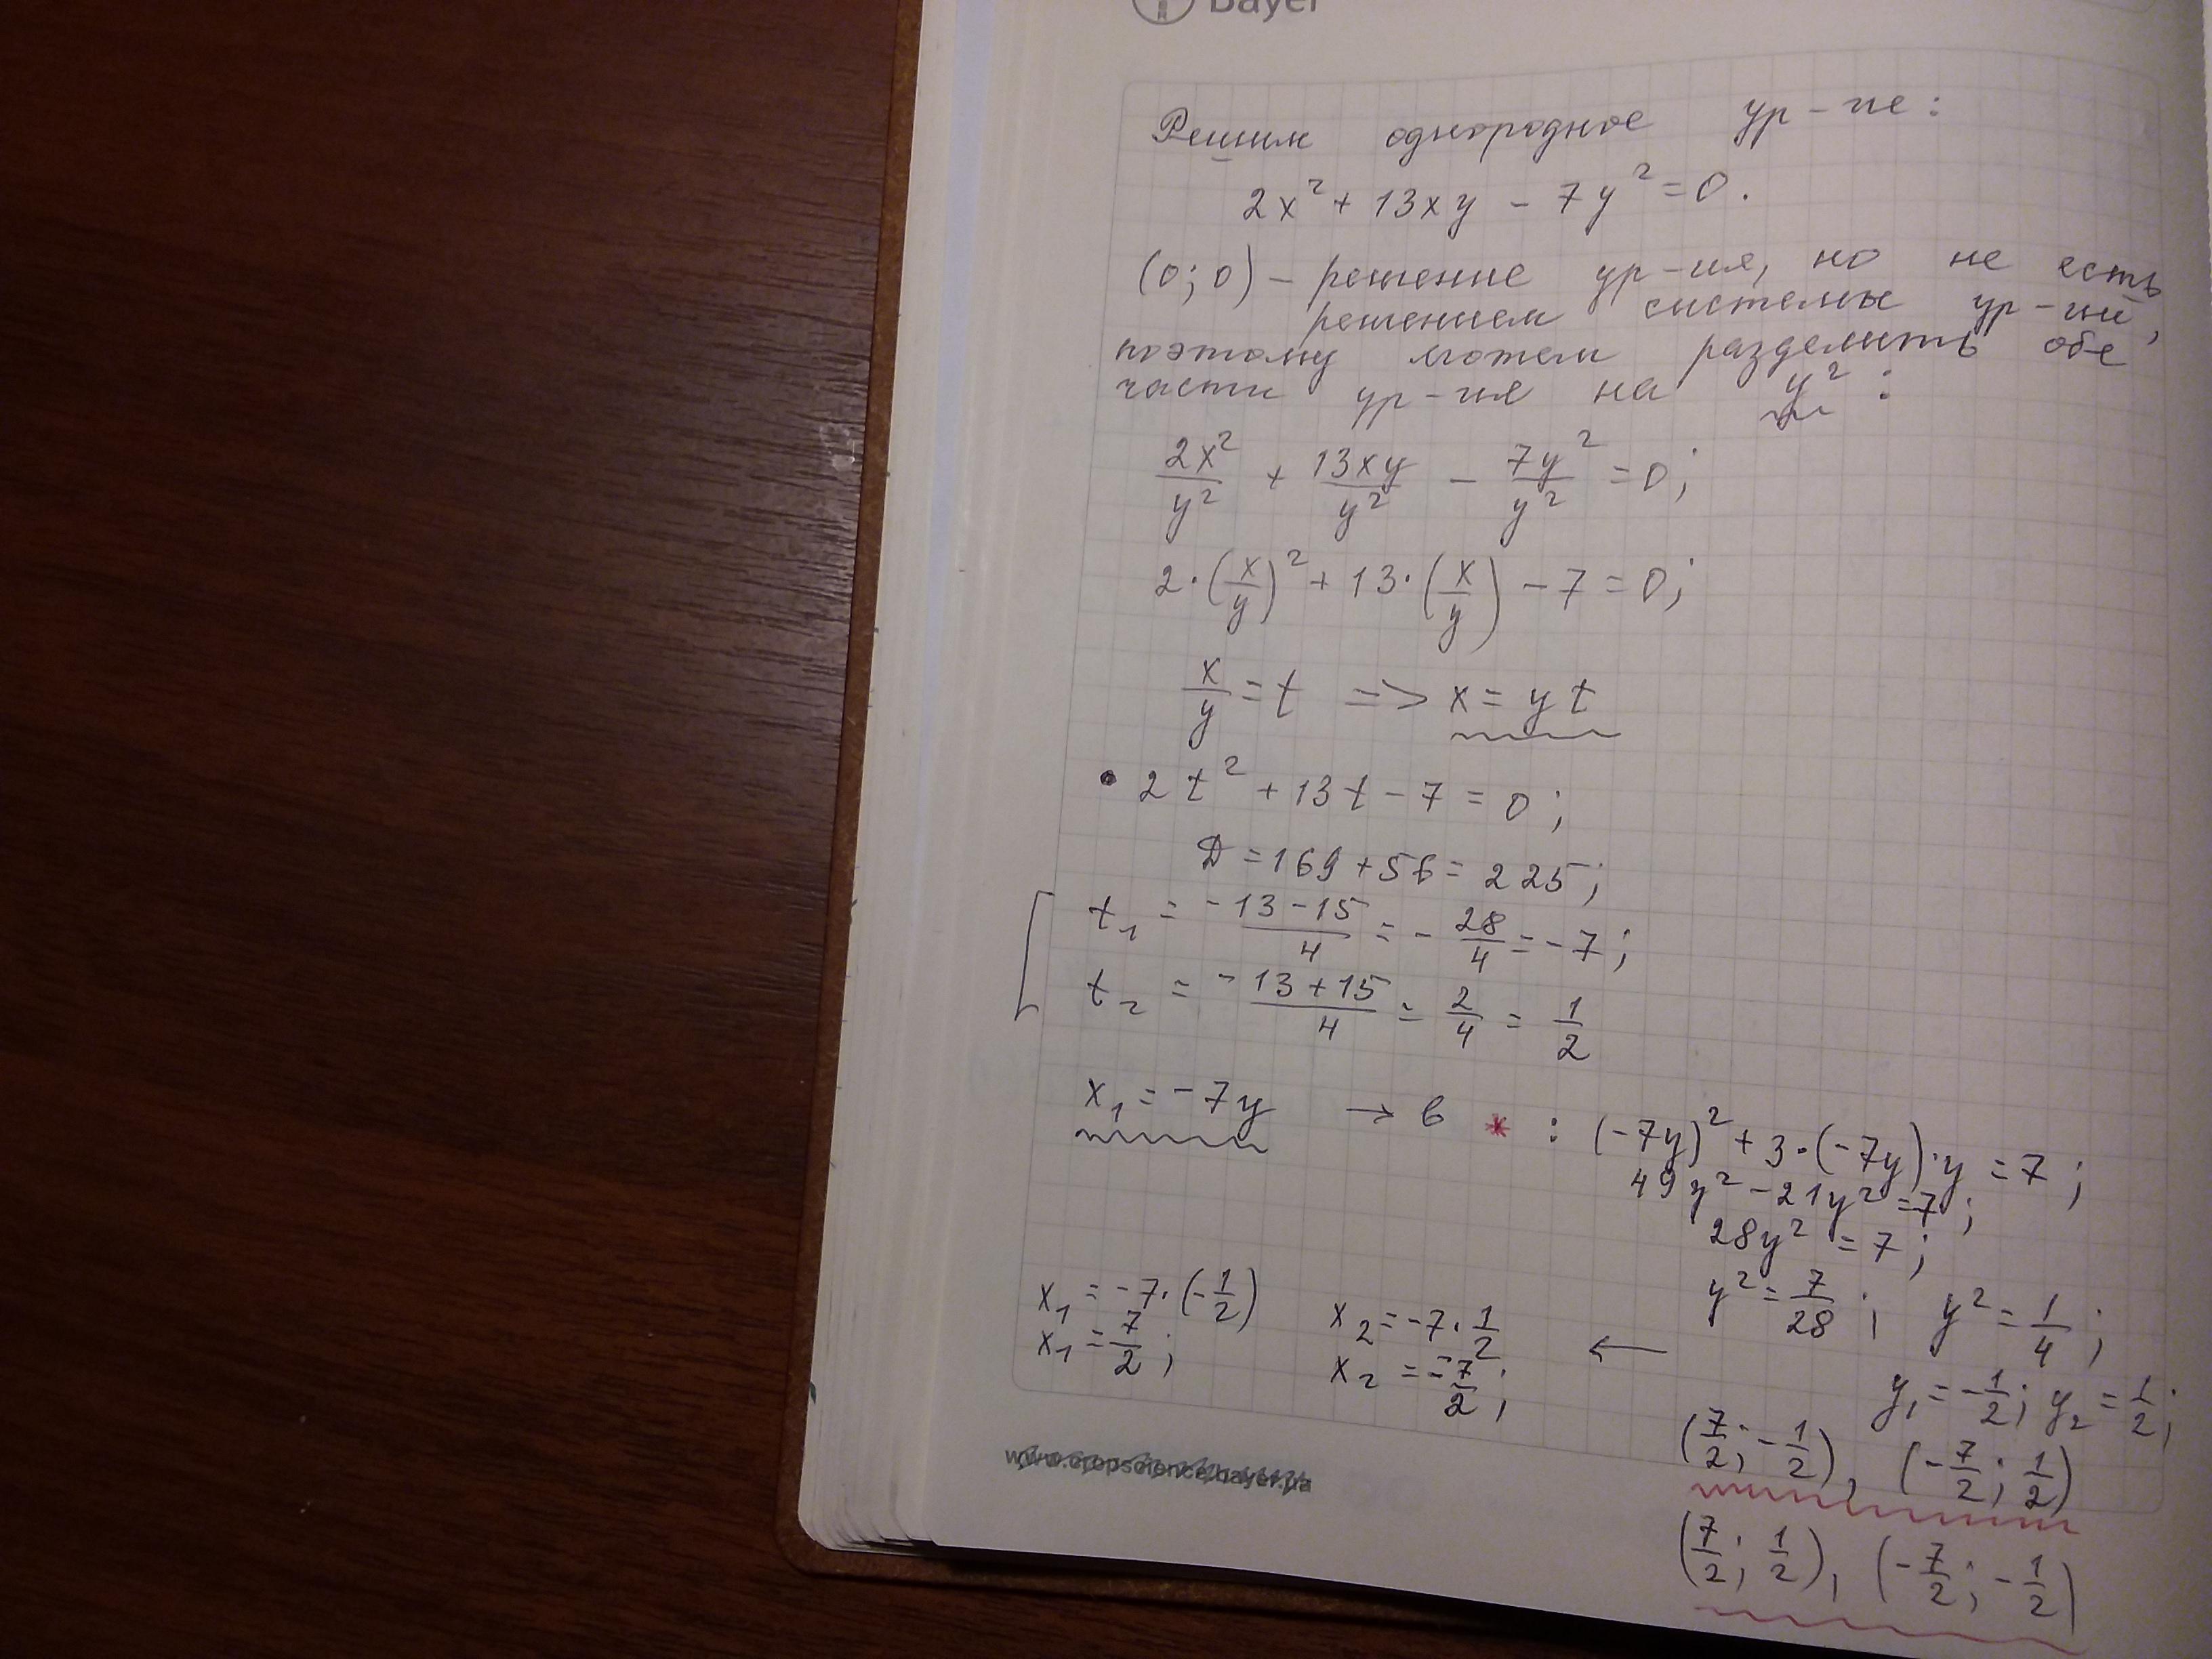 Bayer
Решим однородное ур-ие:
2x² + 13xy - 7y² = 0.
(0; 0) - решение ур-ия, но не есть
решением системы ур-ий,
поэтому можем разделить обе
части ур-ия на y² :
2x²/y² + 13xy/y² - 7y²/y² = 0;
2·(x/y)² + 13·(x/y) - 7 = 0;
x/y = t => x = yt
• 2t² + 13t - 7 = 0;
D = 169 + 56 = 225;
t₁ = (-13-15)/4 = -28/4 = -7;
t₂ = (-13+15)/4 = 2/4 = 1/2
x₁ = -7y → в * : (-7y)² + 3·(-7y)·y = 7;
49y² - 21y² = 7;
28y² = 7;
y² = 7/28; y² = 1/4;
y₁ = -1/2; y₂ = 1/2;
x₁ = -7·(-1/2) x₂ = -7·1/2 ←
x₁ = 7/2; x₂ = -7/2;
(7/2; -1/2), (-7/2; 1/2)
(7/2; 1/2), (-7/2; -1/2)
www.cropscience.bayer.ua